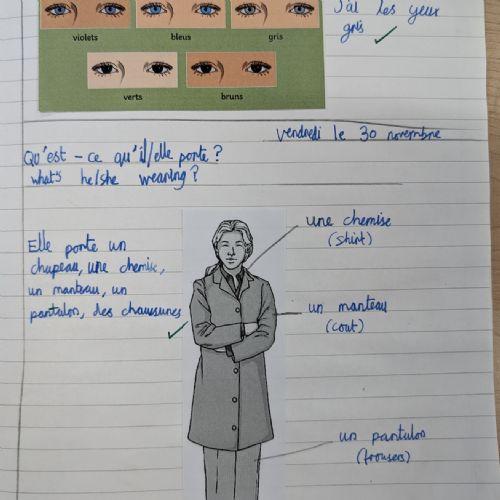 violets bleus gris
verts bruns
J'ai les yeux
gris
vendredi le 30 novembre
Qu'est-ce qu'il/elle porte?
what's he/she wearing?
Elle porte un
chapeau, une chemise,
un manteau, un
pantalon, des chaussures
une chemise
(shirt)
un manteau
(coat)
un pantalon
(trousers)